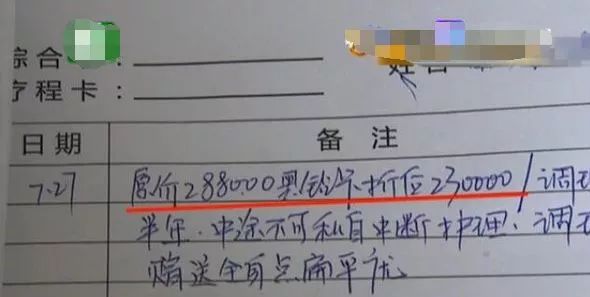 综合:
疗程卡:
姓名
日期 备注
7.27 原价288000奥 折后230000/调
半年.中途不可私自中断护理!调
赠送全百点扁平疣